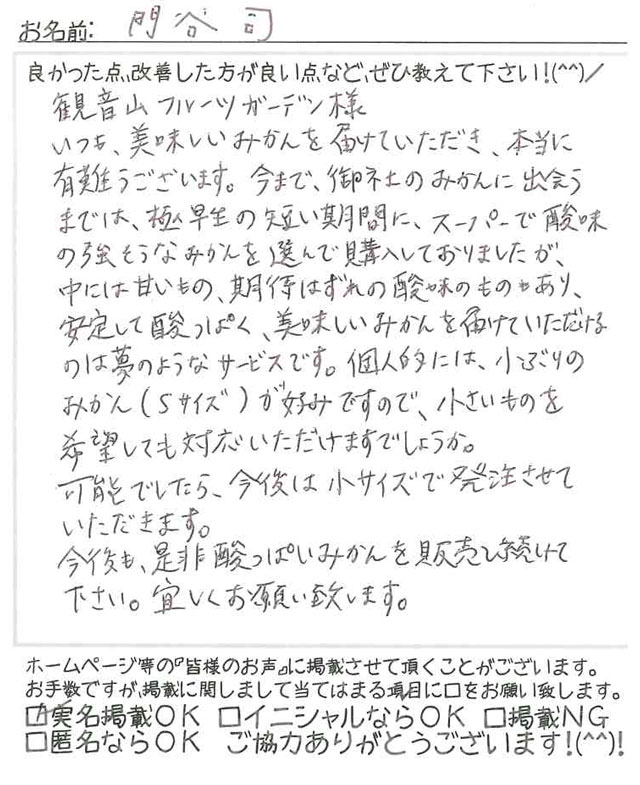 お名前: 門谷 司
良かった点、改善した方が良い点など、ぜひ教えて下さい!(^^)/
観音山フルーツガーデン様
いつも、美味しいみかんを届けていただき、本当に
有難うございます。今まで、御社のみかんに出会う
までは、極早生の短い期間に、スーパーで酸味
の強そうなみかんを選んで購入しておりましたが、
中には甘いもの、期待はずれの酸味のものもあり、
安定して酸っぱく、美味しいみかんを届けていただける
のは夢のようなサービスです。個人的には、小ぶりの
みかん(Sサイズ)が好みですので、小さいものを
希望しても対応いただけますでしょうか。
可能でしたら、今後は小サイズで発注させて
いただきます。
今後も、是非酸っぱいみかんを販売し続けて
下さい。宜しくお願い致します。
ホームページ等の『皆様のお声』に掲載させて頂くことがございます。
お手数ですが、掲載に関しまして当てはまる項目に☐をお願い致します。
☑実名掲載OK ☐イニシャルならOK ☐掲載NG
☐匿名ならOK ご協力ありがとうございます!(^^)!